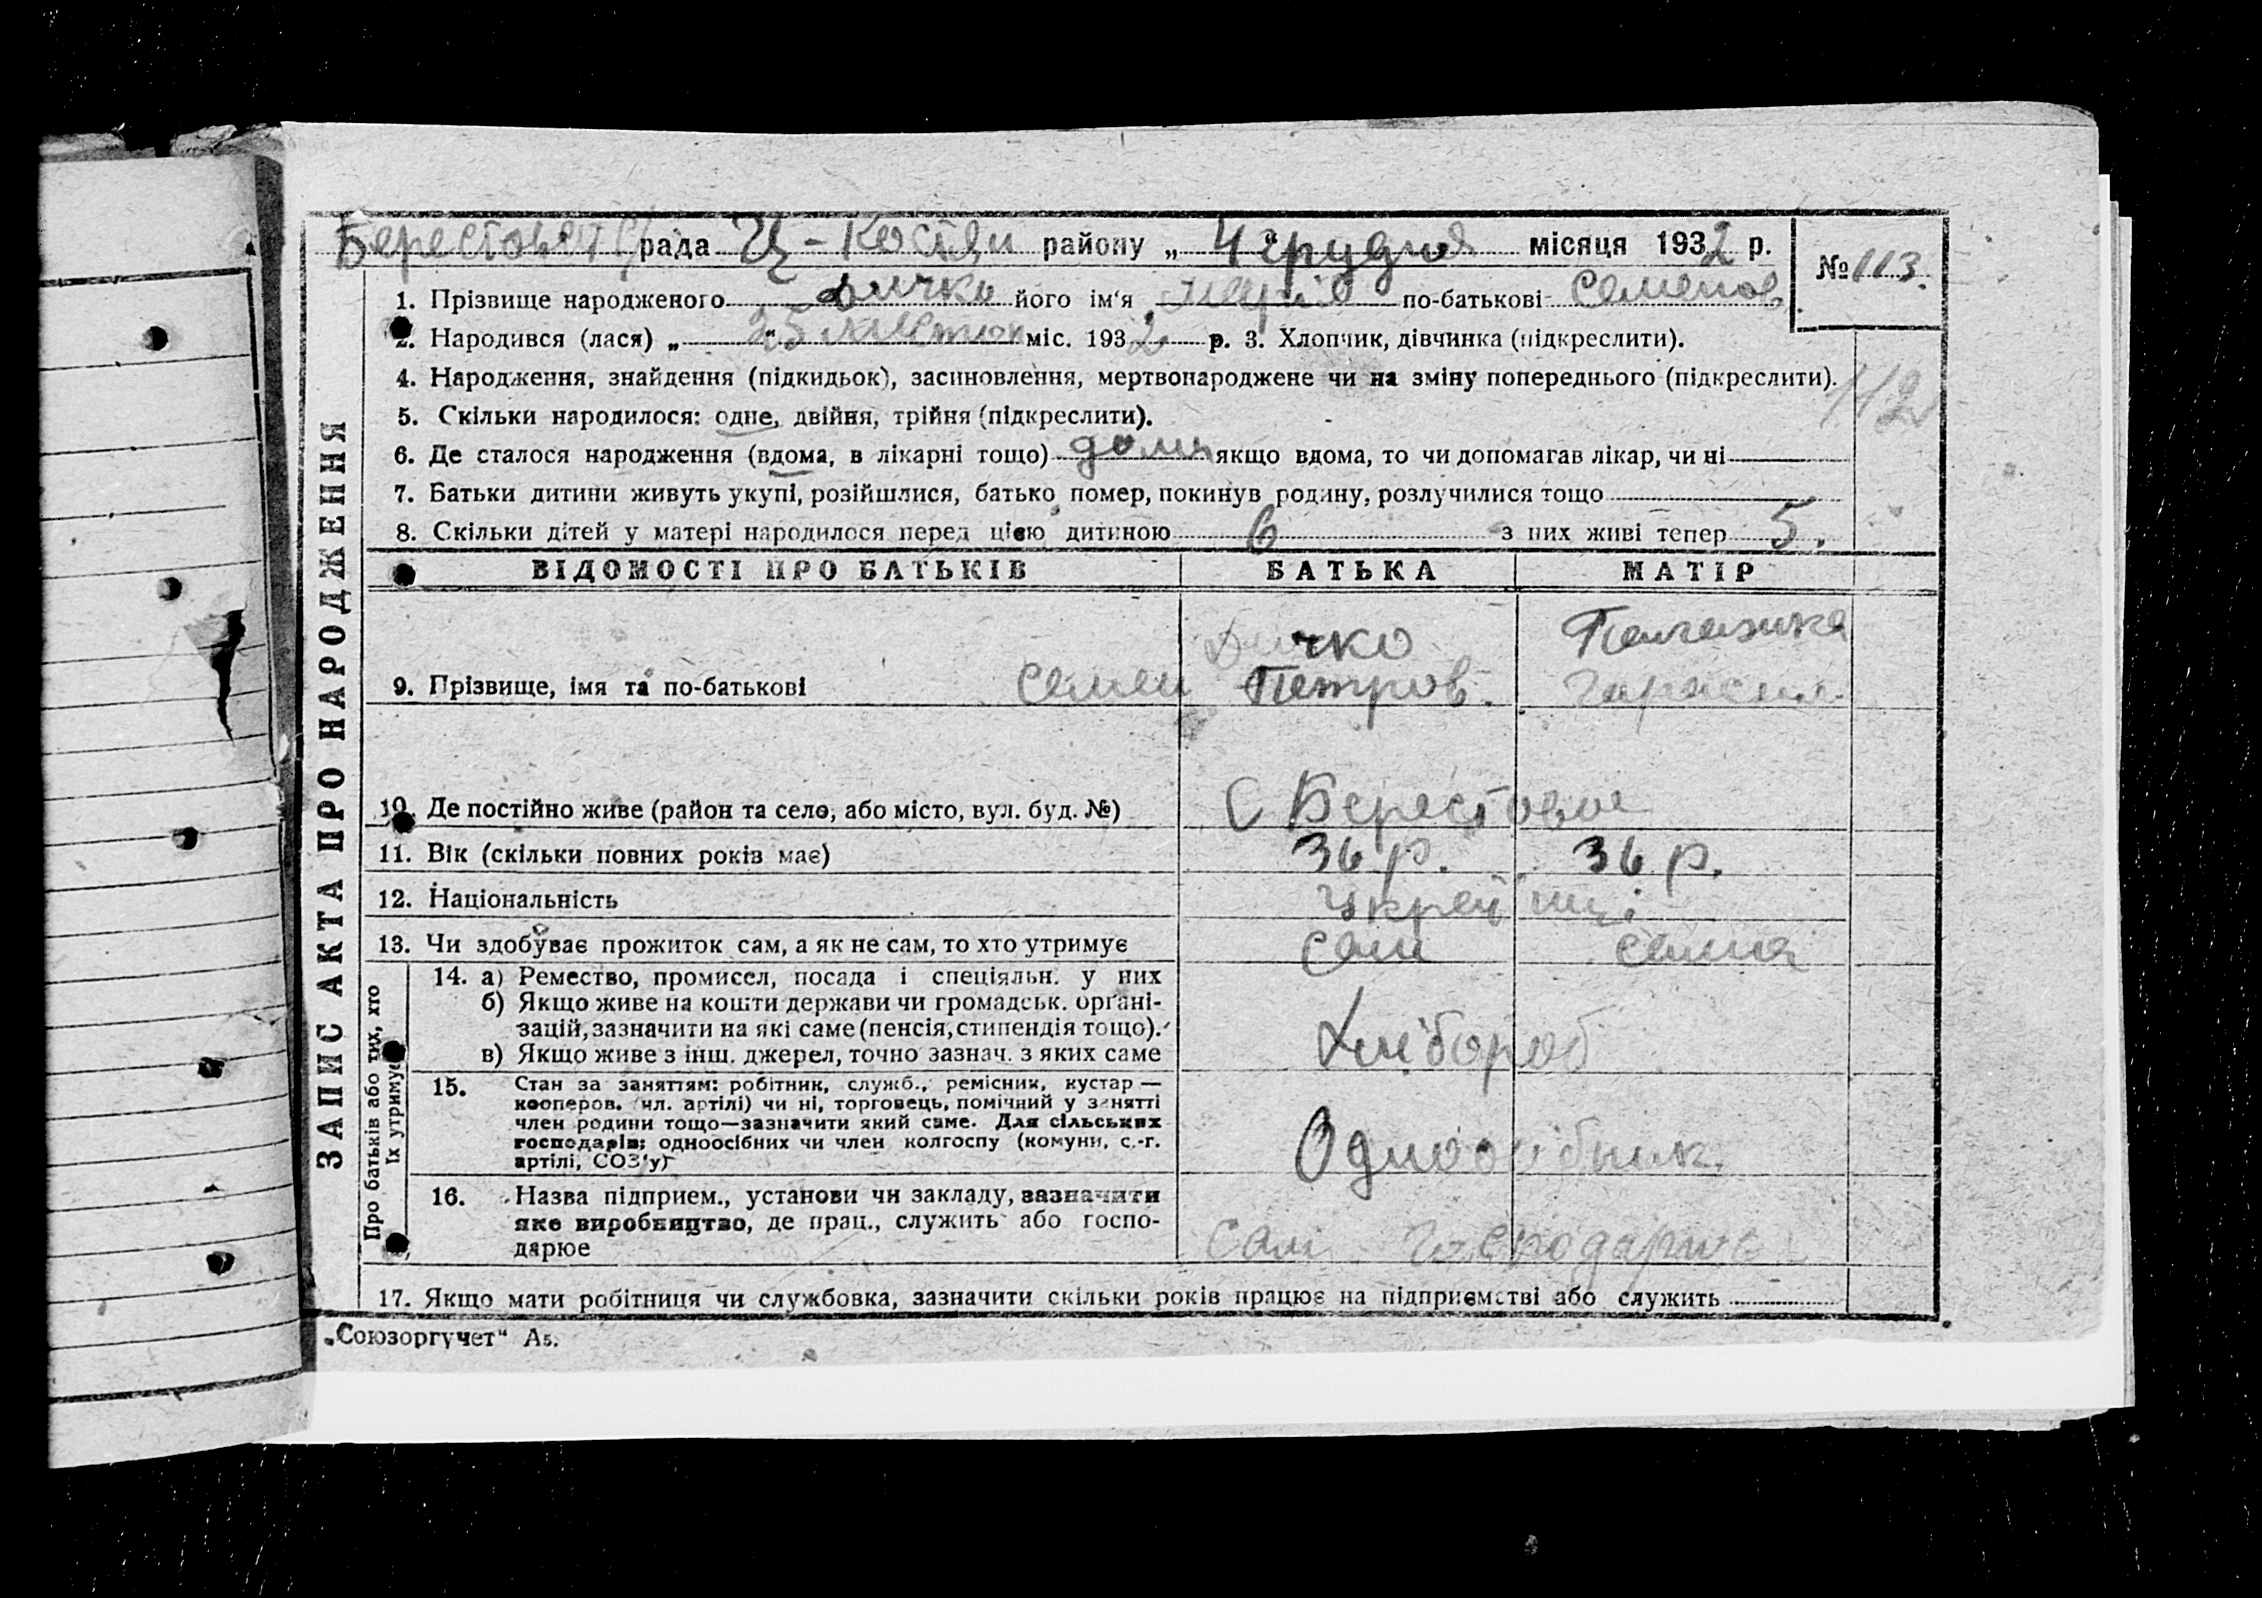 Берестовет с/рада Ч-Костян району „ 4 грудня місяця 1932 р.
№ 113.
1. Прізвище народженого Дичко його ім'я Марія по-батькові Семенов
2. Народився (лася) „ 25 листоп міс. 1932 р. 3. Хлопчик, дівчинка (підкреслити).
4. Народження, знайдення (підкидьок), засиновлення, мертвонароджене чи на зміну попереднього (підкреслити).
112
5. Скільки народилося: одне, двійня, трійня (підкреслити).
6. Де сталося народження (вдома, в лікарні тощо) дома якщо вдома, то чи допомагав лікар, чи ні
7. Батьки дитини живуть укупі, розійшлися, батько помер, покинув родину, розлучилися тощо
8. Скільки дітей у матері народилося перед цією дитиною 6 з них живі тепер 5.
ЗАПИС АКТА ПРО НАРОДЖЕННЯ
ВІДОМОСТІ ПРО БАТЬКІВ БАТЬКА МАТІР
Дичко
9. Прізвище, імя та по-батькові Семен Петров.
10. Де постійно живе (район та село, або місто, вул. буд. №) С Берестове
11. Вік (скільки повних років має) 36 р. 36 р.
12. Національність Украйінці
13. Чи здобуває прожиток сам, а як не сам, то хто утримує сам сама
Про батьків або тих, хто
їх утримує
14. а) Ремество, промисел, посада і спеціяльн. у них
б) Якщо живе на кошти держави чи громадськ. орґані-
зацій, зазначити на які саме (пенсія, стипендія тощо).
в) Якщо живе з інш. джерел, точно зазнач. з яких саме
Хлібороб
15. Стан за заняттям: робітник, служб., ремісник, кустар —
кооперов. (чл. артілі) чи ні, торговець, помічний у занятті
член родини тощо—зазначити який саме. Для сільських
господарів: одноосібних чи член колгоспу (комуни, с.-г.
артілі, СОЗ'у)
Одноосібник.
16. Назва підприєм., установи чи закладу, зазначити
яке виробництво, де прац., служить або госпо-
дарює
Самі господарює
17. Якщо мати робітниця чи службовка, зазначити скільки років працює на підприємстві або служить
„Союзоргучет“ А5.